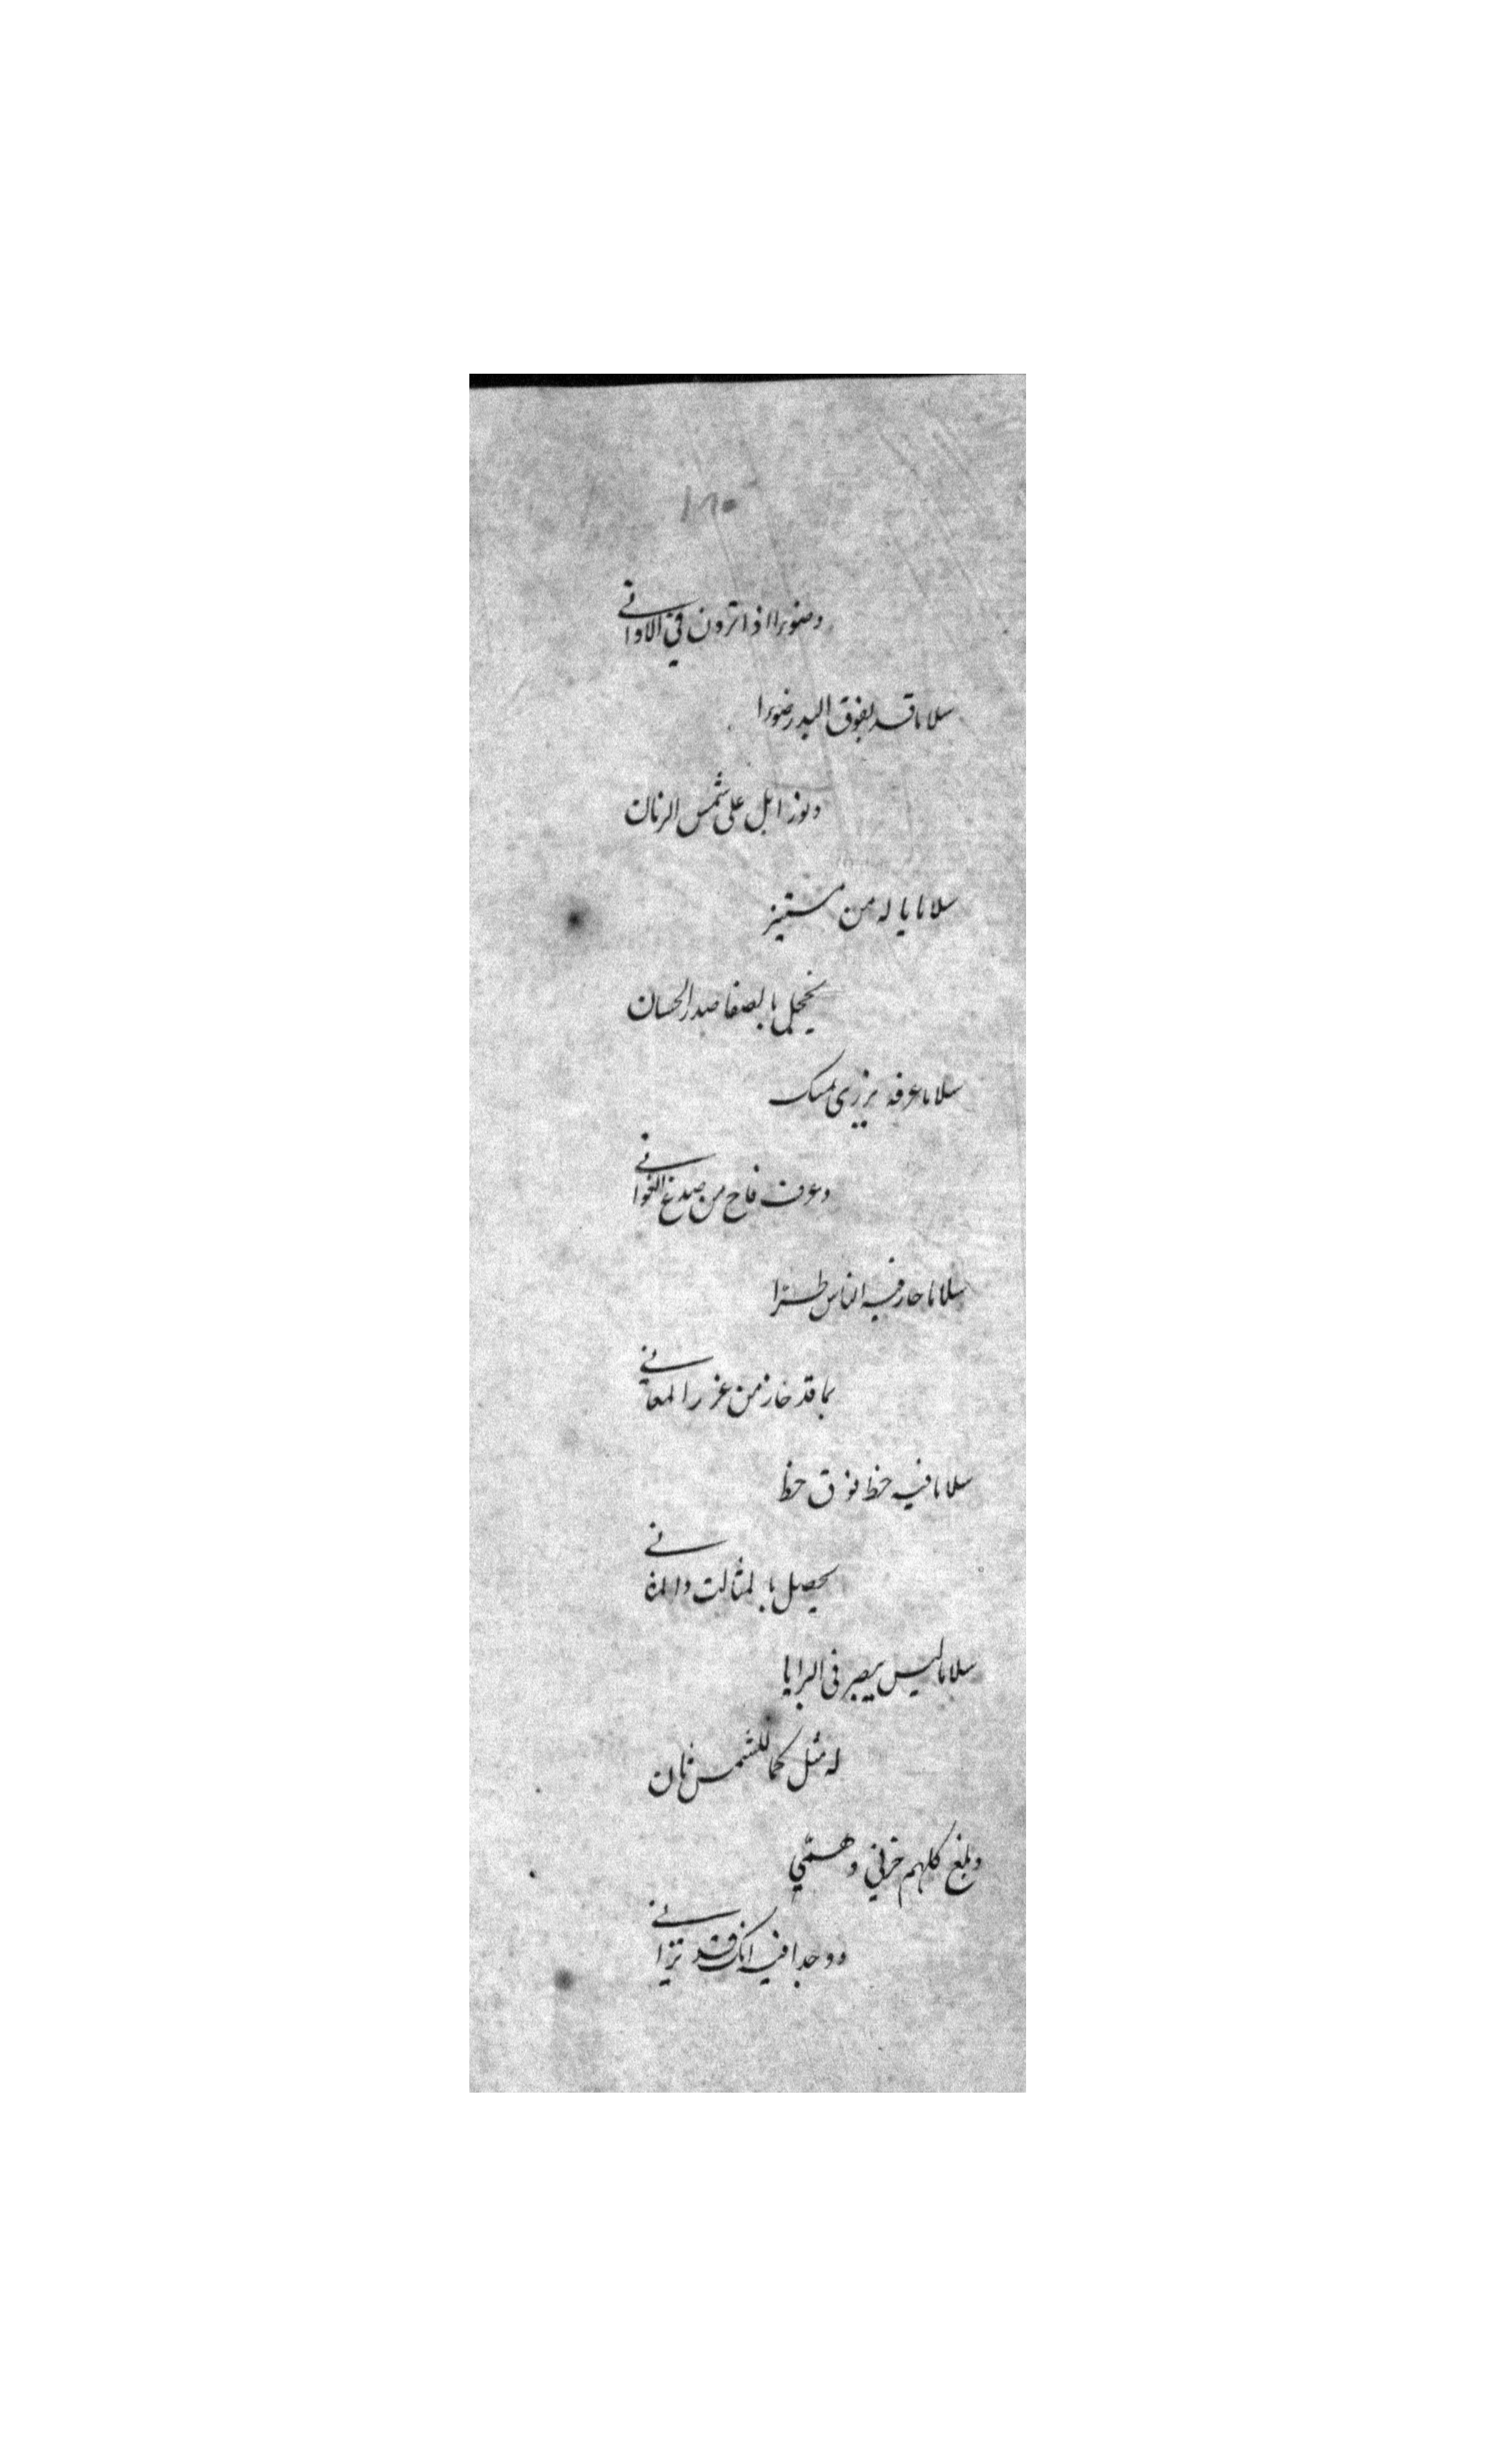 وضوءا اذا ترون في الاواني
سلاما قد يفوق البدر ضوءا
ونورا بل على شمس الزمان
سلاما يا له من مستنير
يخجل بالصفا صدر الحسان
سلاما عرفه يزري بمسك
وعرف فاح من صدغ الغواني
سلاما حار فيه الناس طرّا
بما قد حاز من غرر المعاني
سلاما فيه حظ فوق حظ
يحصل بالمثالث والمثاني
سلاما ليس يبصر في البرايا
له مثل كما للشمس ثان
وبلغ كلهم حزني وهمّي
ووجدا فيه انك قد تراني